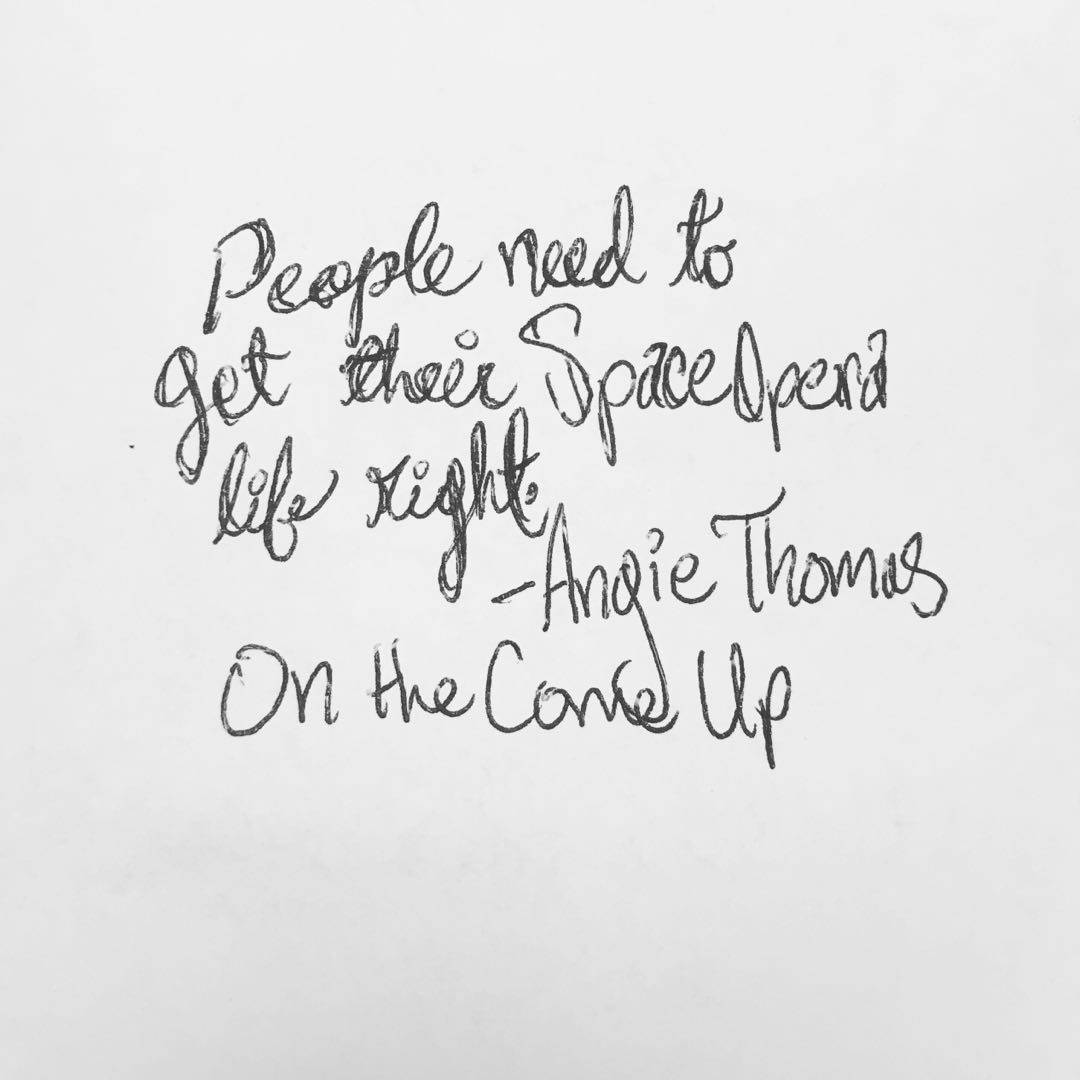 People need to
get their Space Opera
life right.
-Angie Thomas
On the Come Up